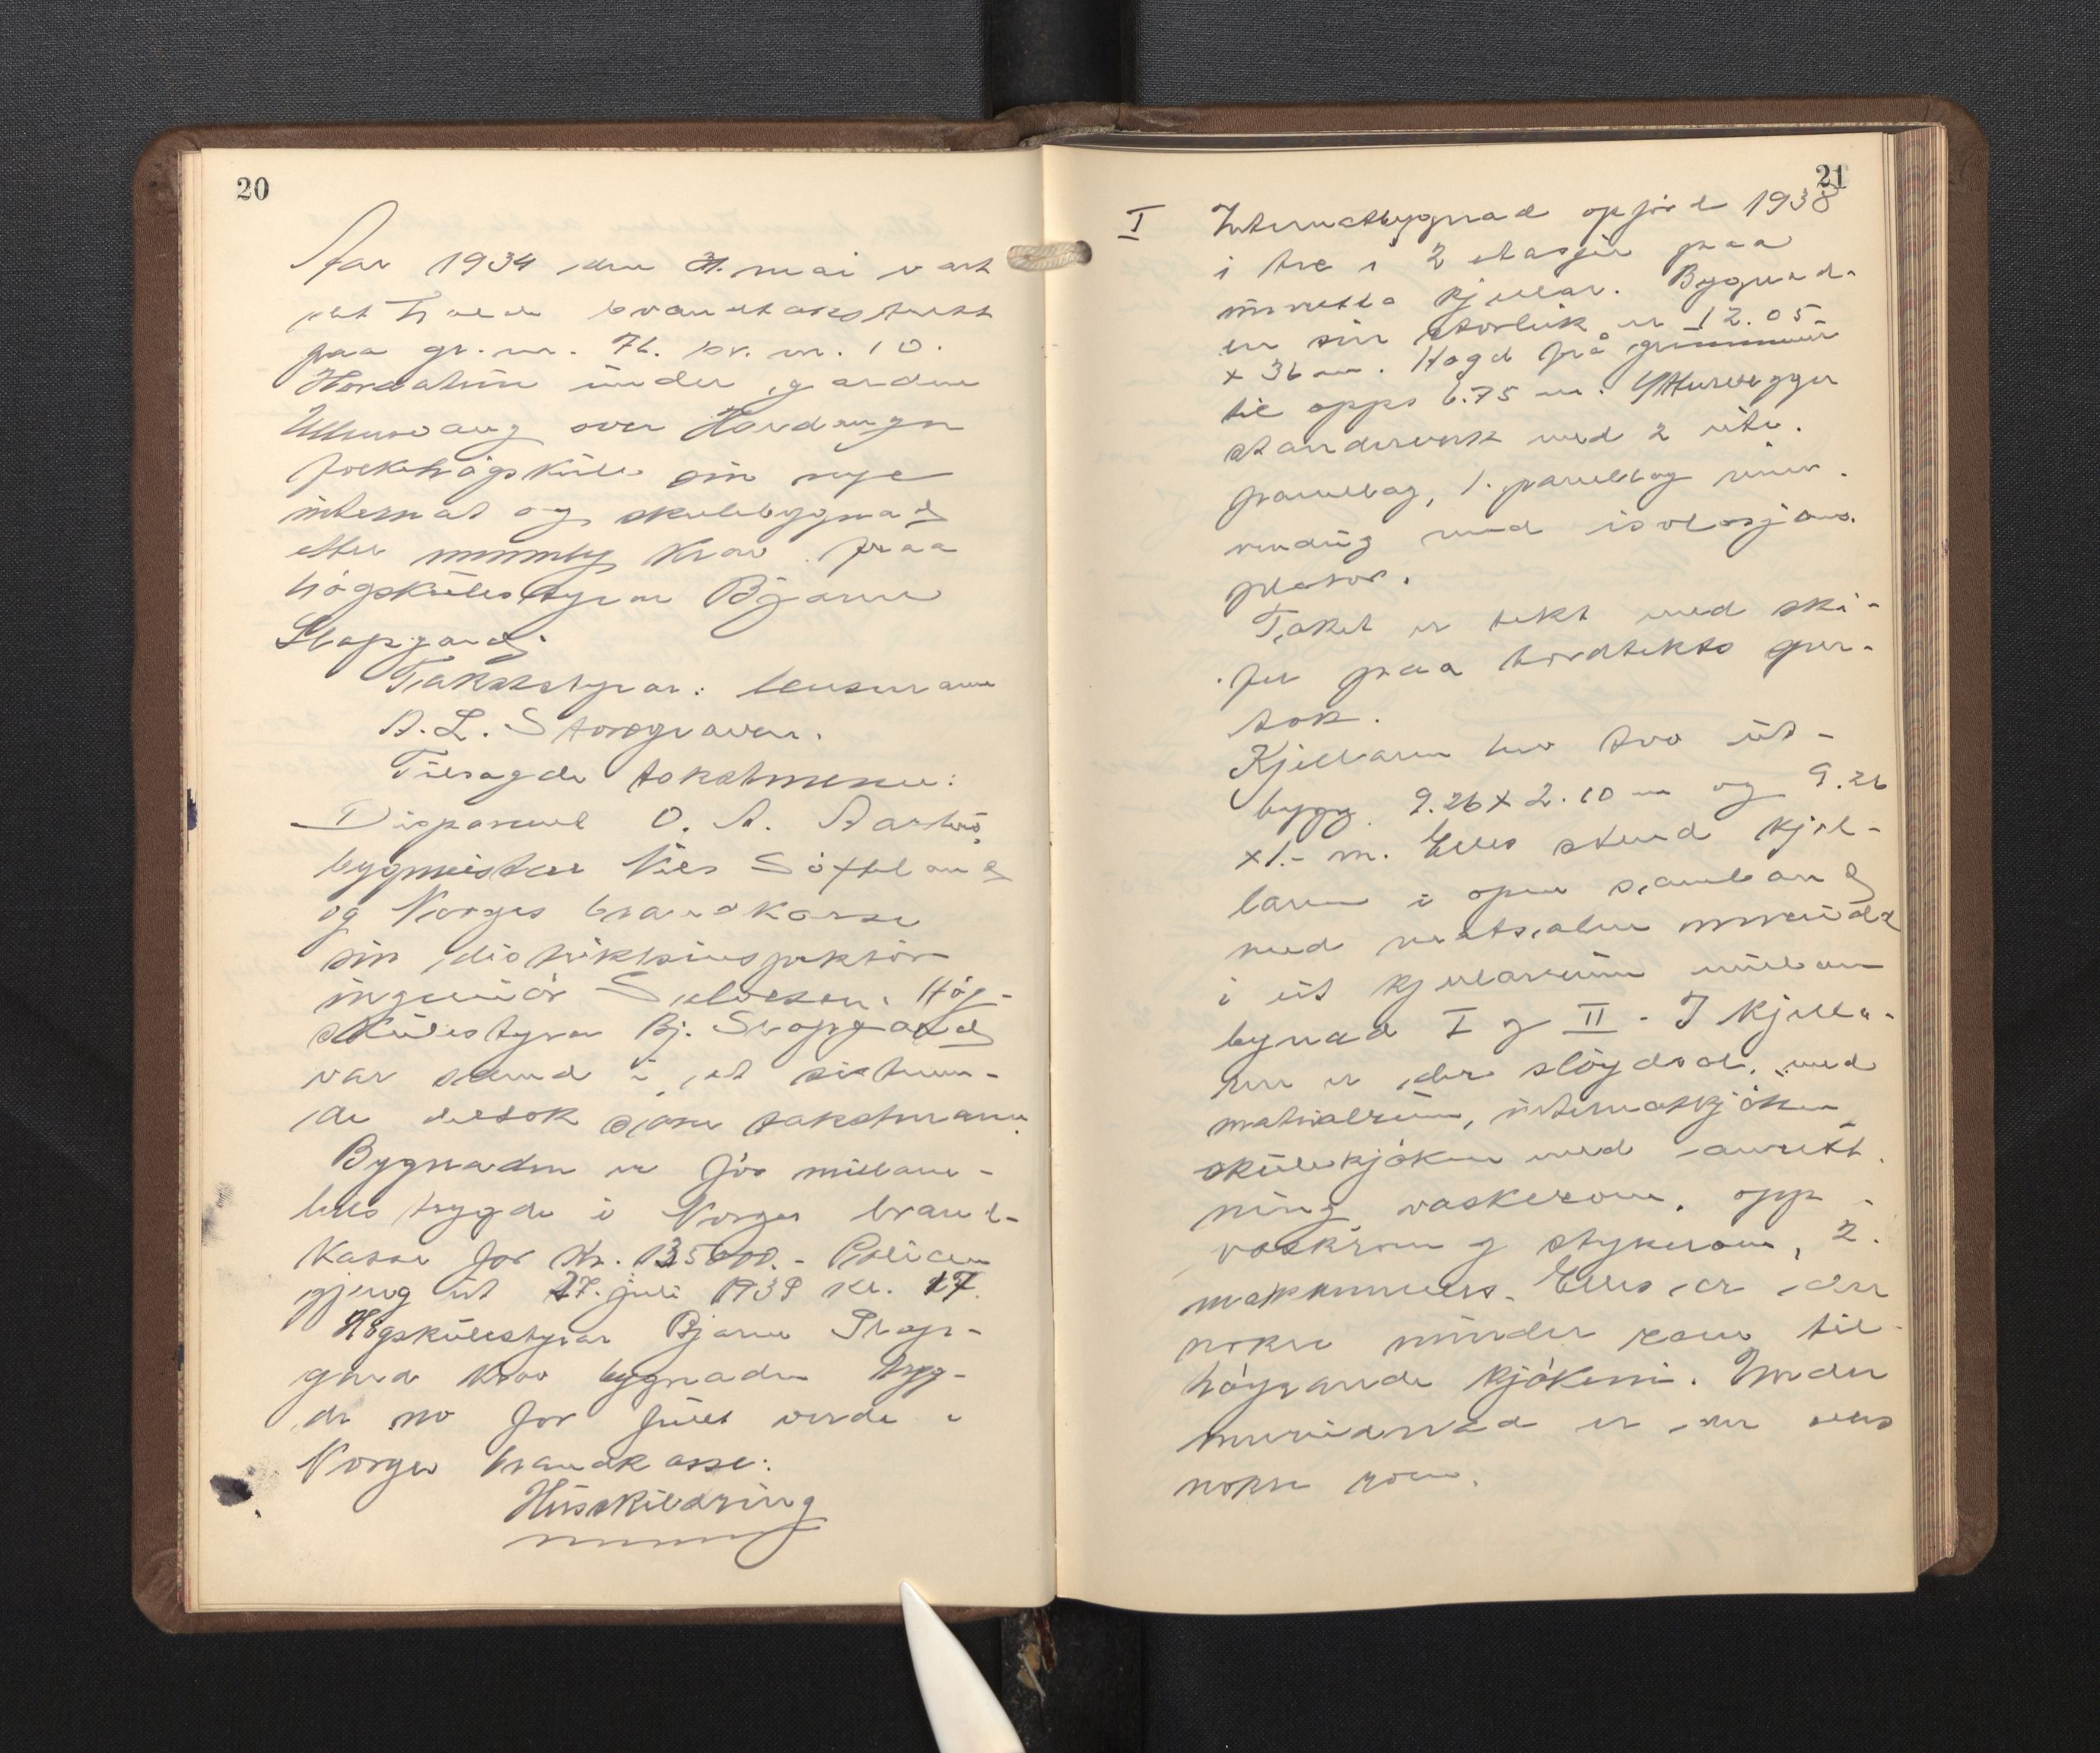 20
Aar 1934 den 31. mai vart
det halde brandtakstrett
paa gr. nr. 76. br. nr. 10.
Hordatun under garden
Ullensvang over Hardanger
folkehøgskule sin nye
internat og skulebygnad
etter munnleg krav fraa
høgskulestyrar Bjarne
Slapgard.
Takststyrar: lensmann
A. L. Storegraven.
Tilsagde takstmenn:
Disponent O. A. Aarhus
bygmeister Nils Söfteland
og Norges brandkasse
sin distriktsinspektør
ingeniör Høg-
skulestyrar Bj. Slapgard
var samd i at sistnem-
de vert sokn takstmann.
Bygnaden er før millom-
bels trygda i Norges brand-
kasse for kr. 135000.- Policen
gjeng ut 27. juli 1939 kl. 17.
Høgskulestyrar Bjarne Slap-
gard krev bygnaden tryg-
da no for fullt verde i
Norges brandkasse.
Husskildring
21
I Internatbygnad opförd 1938
i tre i 2 etasjer paa
innreidd kjellar. Bygnad-
en sin storleik er 12.05
x 36 m. Høgd frå grunnmur
til opps 6.75 m. Yttervegger
standarverk med 2 utv.
panellag, 1. panellag innv.
vending med isolasjons.
plator.
Taket er tekt med ski-
fer paa bordtekto sper-
tak.
Kjellaren hev tvo ut-
bygg 9.26 x 2.10 m og 9.26
x 1.- m. Elles stend kjel-
laren i open samband
med
i eit kjellarrum millom
bygnad I og II. I kjella-
ren er der slöydsal, med
materialrum, internatkjöken
skulekjöken med anrett.
ning vaskerom, opp-
vaskrom og stykerom, 2.
matkammers. Elles er der
nokre mindre rom til-
höyrande kjökeni. Under
er der elles
nokre rom.